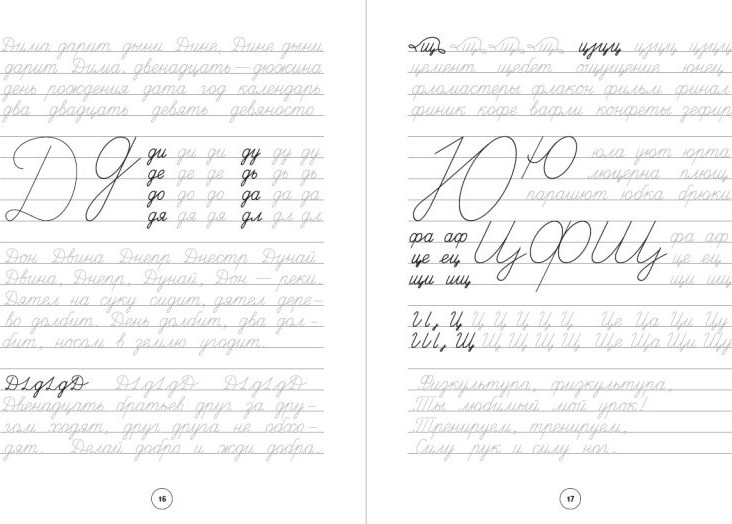 Дима дарит дыни Дине, Дине дыни
дарит Дима. двенадцать — дюжина
день рождения дата год календарь
два двадцать девять девяносто
Д д ди ди ди ду ду ду
де де де дь дь дь
до до до да да да
дя дя дя дл дл дл
Дон Двина Днепр Днестр Дунай
Двина, Днепр, Дунай, Дон — реки.
Дятел на суку сидит, дятел дере-
во долбит. День долбит, два дол-
бит, носом в землю угодит.
Двенадцать братьев друг за дру-
гом ходят, друг друга не обхо-
дят. Делай добро и жди добра.
16
цемент щебет ощущение юнец
фломастеры флакон фильм финал
финик кафе вафли конфеты зефир
Ю ю юла уют юрта
люцерна плющ
парашют юбка брюки
фа аф Ц Ф Щ фа аф
це ец це ец
щи ищ щи ищ
Ц Ц Ц Ц Ц Ц Це Ца Ци Цу
Щ Щ Щ Щ Щ Щ Ще Ща Щи Щу
Физкультура, физкультура,
Ты любимый мой урок!
Тренируем, тренируем,
Силу рук и силу ног.
17